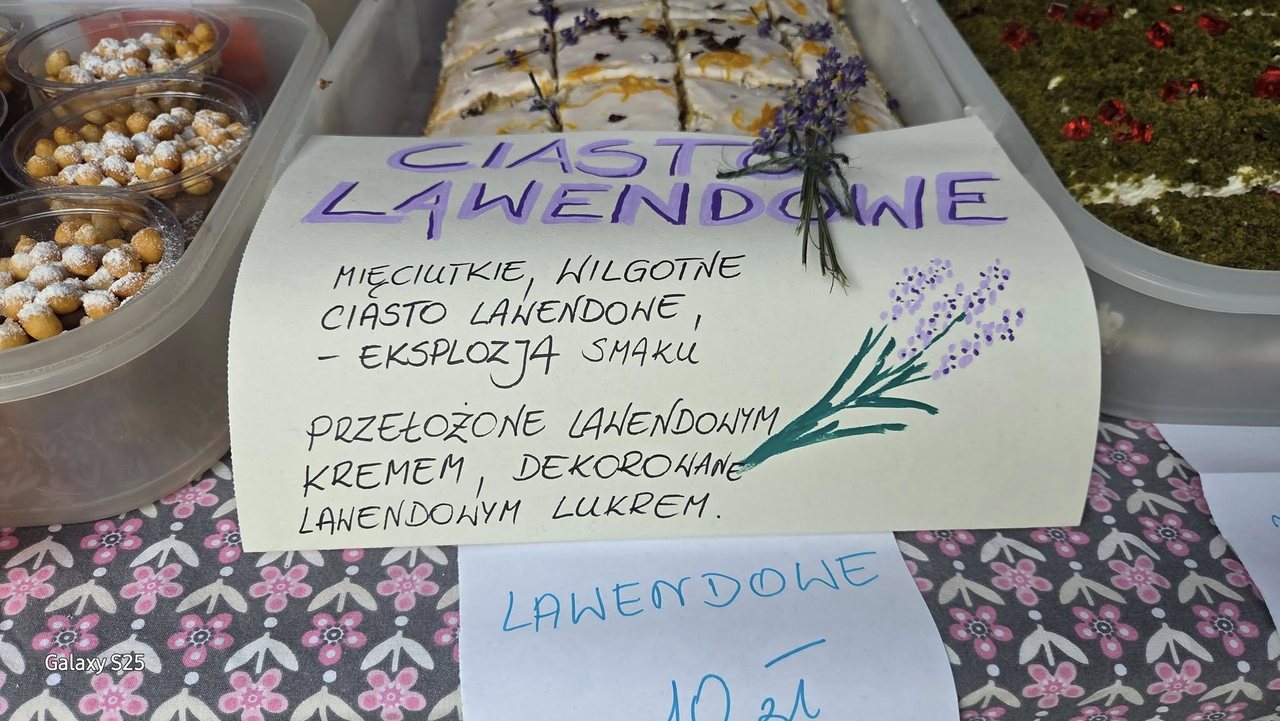 CIASTO
LAWENDOWE
MIĘCIUTKIE, WILGOTNE
CIASTO LAWENDOWE,
– EKSPLOZJA SMAKU
PRZEŁOŻONE LAWENDOWYM
KREMEM, DEKOROWANE
LAWENDOWYM LUKREM.
LAWENDOWE
–
10 zł
Galaxy S25